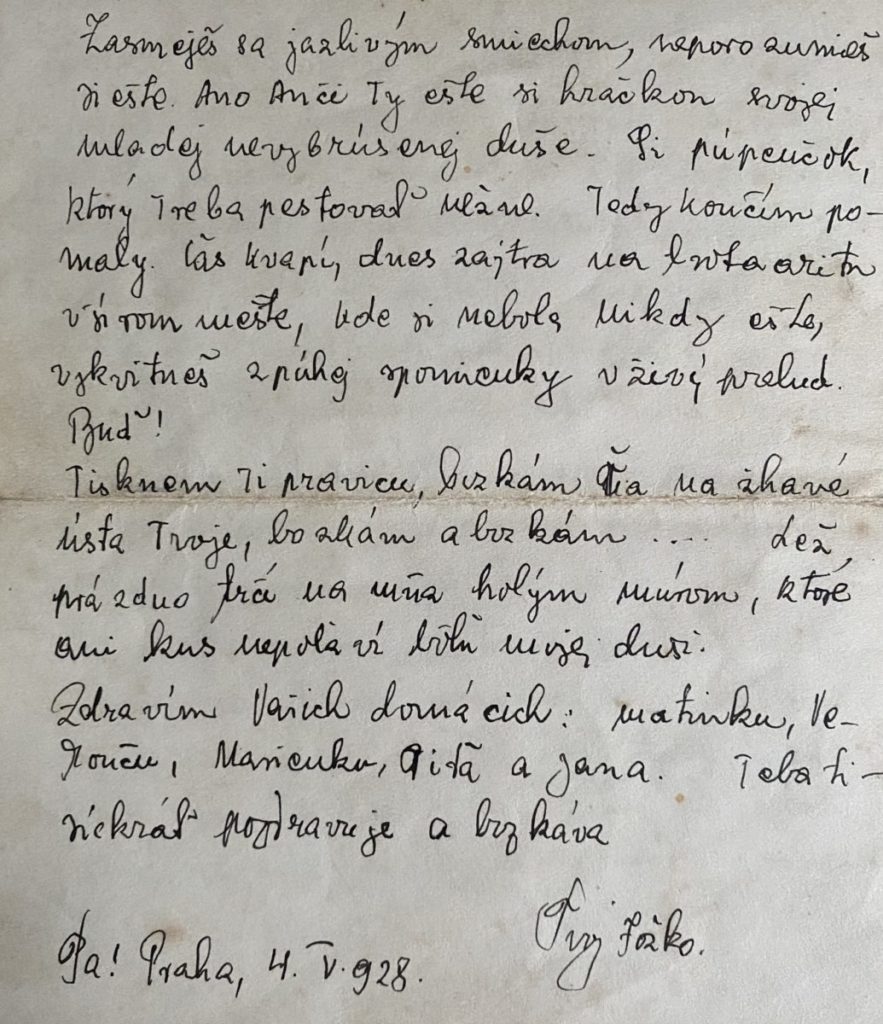 Zasmeješ sa jazlivým smiechom, neporozumieš
si ešte. Ano Anči Ty ešte si hračkou svojej
mladej nevybrúsenej duše. Si púpeučok,
ktorý Treba pestovať nežne. Tedy končím po-
maly. Čas kvapí, dnes zajtra na
v šírom mešte, kde si nebola nikdy ešte,
vykvitneš z púhej spomienky v živý prelud.
Buď!
Tisknem Ti pravicu, bozkám Ťa na žhavé
ústa Tvoje, bozkám a bozkám .... Lež
prázdno trčí na mňa holým múrom, ktoré
ani kus nepolaví bôľu mojej duši.
Zdravím Vašich domácich: matinku, Ve-
ronču, Maricuku, a Jana. Teba ti-
síckráť pozdravuje a bozkáva
Tvoj Jožko.
Pa! Praha, 4. V. 928.